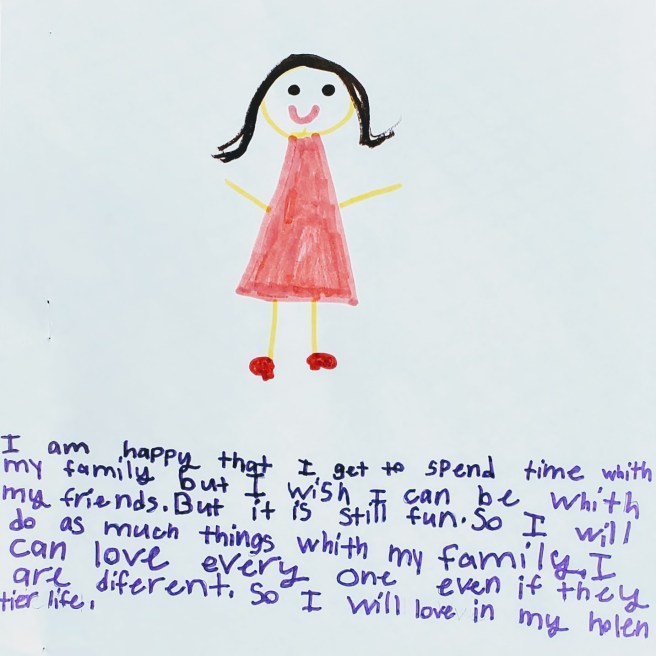 I am happy that I get to spend time whith
my family but I wish I can be whith
my friends. But it is still fun. So I will
do as much things whith my family. I
can love every one even if they
are diferent. So I will love in my holen
tier life.